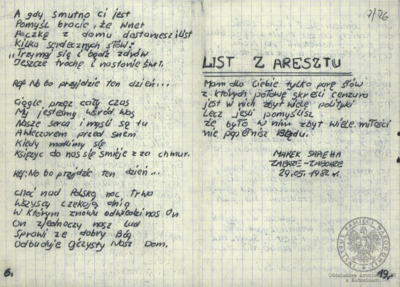 A gdy smutno ci jest
Pomyśl bracie, że wnet
Paczkę z domu dostaniesz i list
Kilka serdecznych słów:
"Trzymaj się i bądź zdrów
Jeszcze trochę i nastanie świt.
Ref: No bo przyjdzie ten dzień...
Ciągle przez cały czas
My jesteśmy wśród was
Nasze serca i myśli są tu
A wieczorem przed snem
Kiedy modlimy się
Księżyc do nas się śmieje z za chmur.
Ref: No bo przyjdzie ten dzień...
Choć nad Polską noc trwa
Wszyscy czekają dnia
W którym znowu odwiedzi nas On
On zjednoczy nasz lud
Sprawi że dobry Bóg
Odbuduje ojczysty Nasz Dom.
6.
7/76
LIST Z ARESZTU
Mam dla Ciebie tylko parę słów
z których połowę skreśli cenzura
jest w nich zbyt wiele polityki
Lecz jeśli pomyślisz
że było w nim zbyt wiele miłości
nie popełnisz błędu.
MAREK
ZABRZE-ZABORZE
29.05.1982 r.
19.